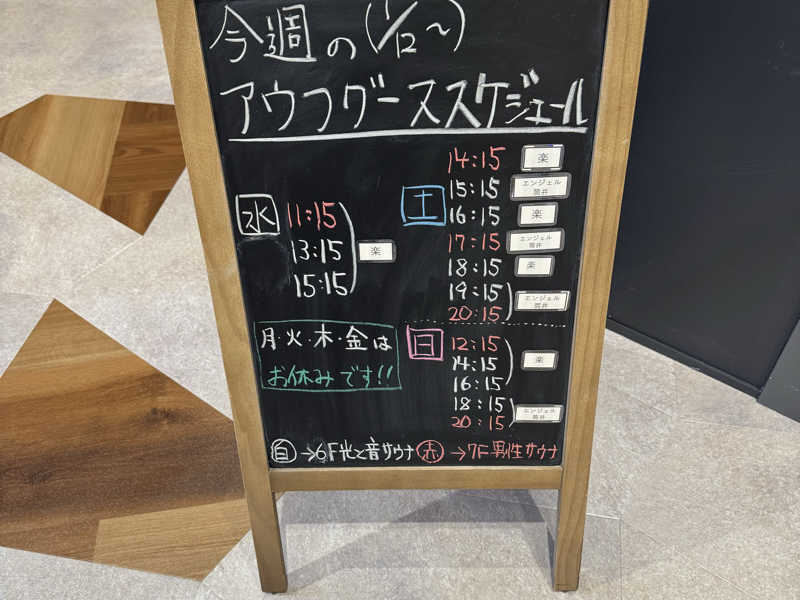 今週の(1/12~)
アウフグーススケジュール
水
11:15
13:15
15:15
楽
月・火・木・金は
お休みです!!
土
14:15 楽
15:15 エンジェル 筒井
16:15 楽
17:15 エンジェル 筒井
18:15 楽
19:15
20:15
エンジェル 筒井
日
12:15
14:15
16:15
楽
18:15
20:15
エンジェル 筒井
白→6F光と音サウナ 赤→7F男性サウナ